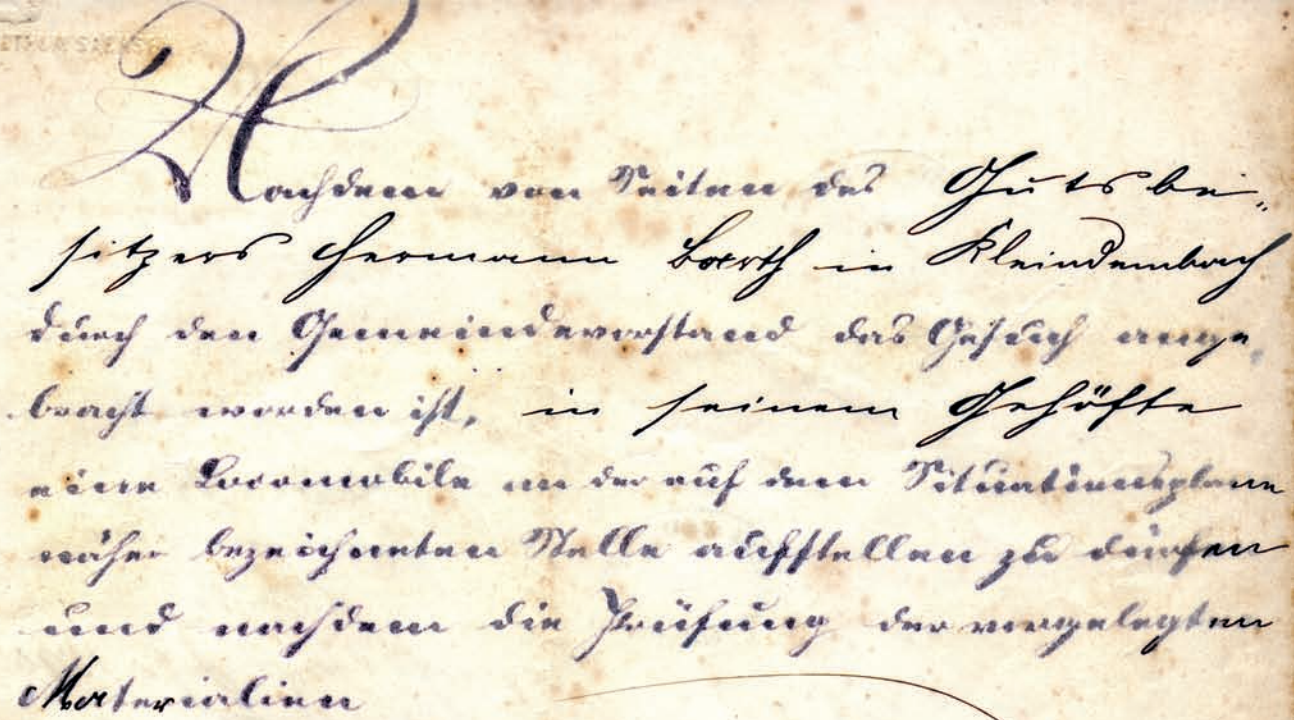 Nachdem von Seiten des Gutsbe-
sitzers Hermann Barth in Kleindembach
durch den Gemeindevorstand das Gesuch ange-
bracht worden ist, in seinem Gehöfte
eine Locomobile an der auf dem Situationsplane
näher bezeichneten Stelle aufstellen zu dürfen
und nachdem die Prüfung der vorgelegten
Materialien